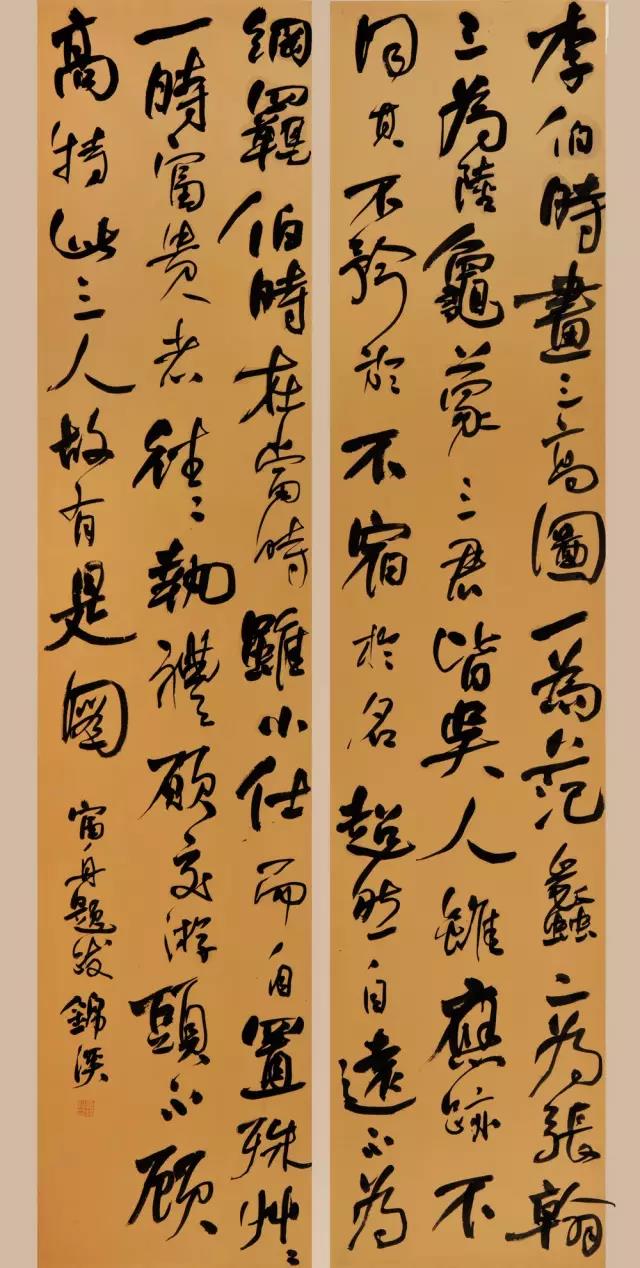 李伯時畫三高圖一為范蠡二為張翰
三為陸龜蒙三君皆吳人雖應跡不
同其不矜於不宿於名超然自遠不為
綱羈伯時在當時雖小仕而自置殊艸〻
一時富貴者往〻執禮願交游頭不顧
高特此三人故有是圖
舟題跋 錦溪